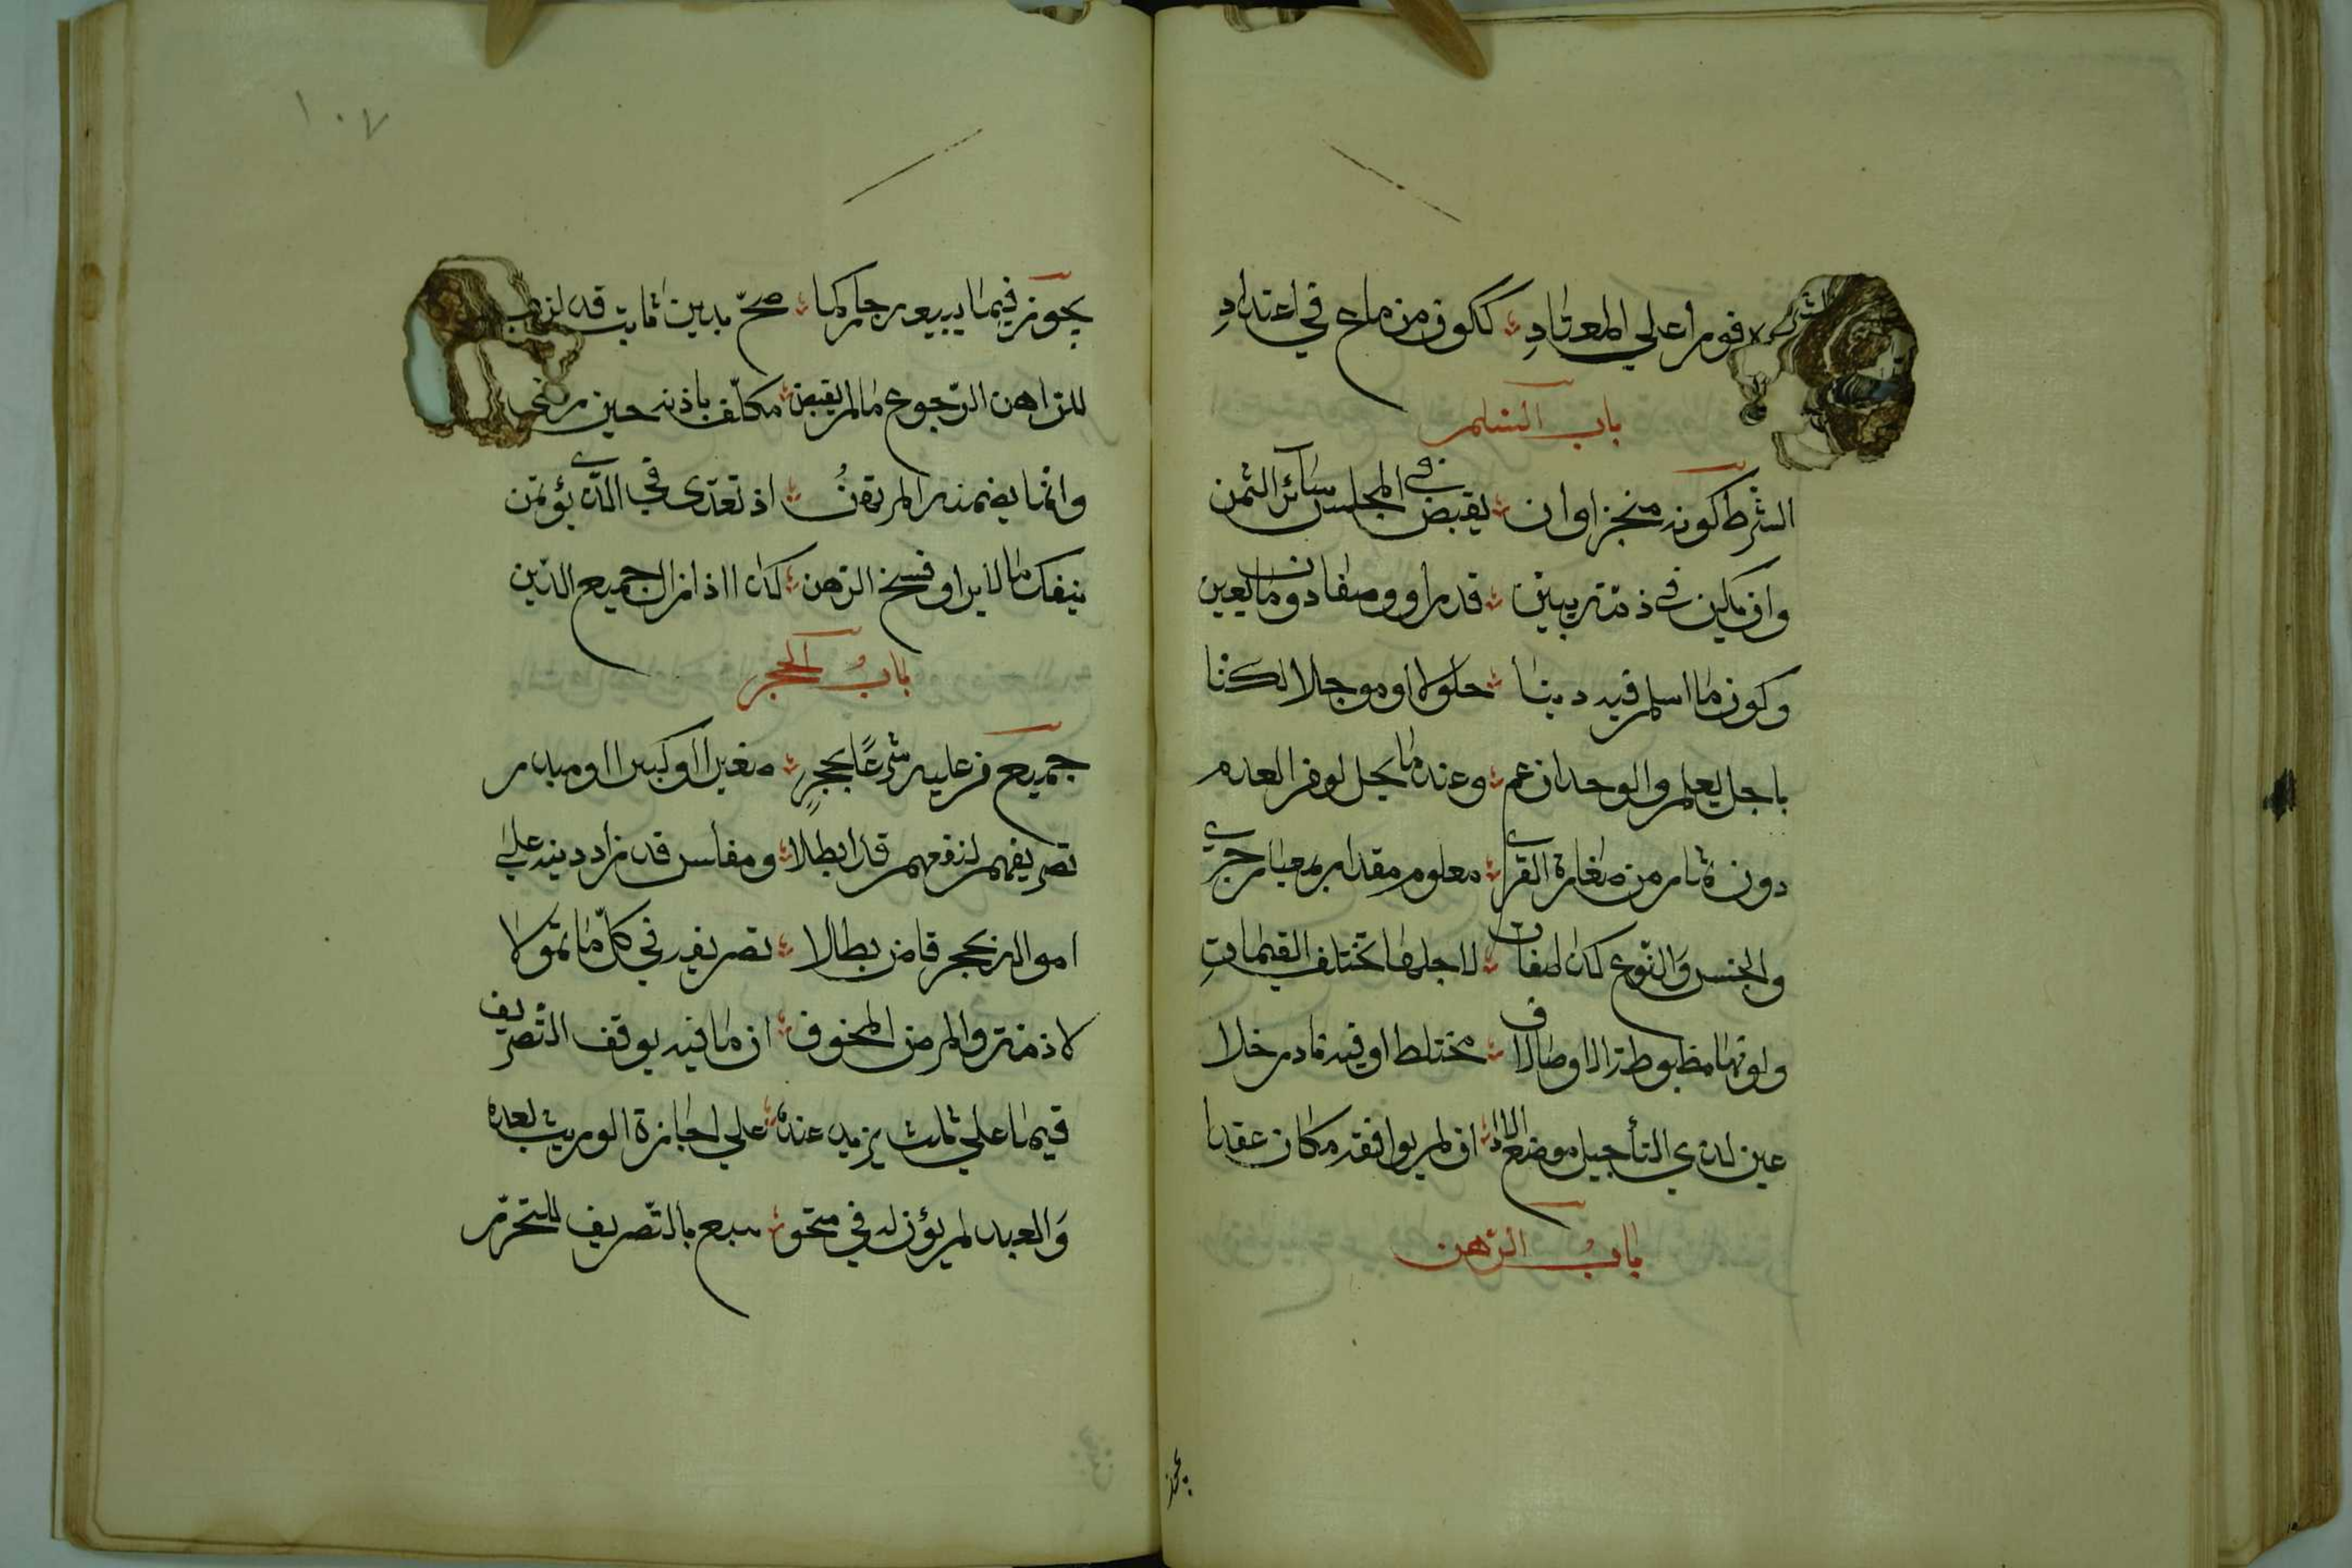 الشر لا فورا علي المعتاد ؞ ككون من ملح في اعتداد
باب السلم
الشرط كونه منجزا وان ؞ يقبض في المجلس سائر الثمن
وان يكن في ذمة يبين ؞ قدرا ووصفا دون ما يعين
وكون ما اسلم فيه دينا ؞ حلولا او موجلا لكنا
باجل يعلم والوجدان عم ؞ وعند ما يحل لو فر العدم
دون ثمار من صغارة القري ؞ معلوم مقدار بمعيار جري
والجنس والنوع كذا صفات ؞ لاجلها تختلف القيمات
ولونها مظبوطة الاوصاف لا ؞ مختلط او فيه نادر خلا
عين لذي التأجيل موضع الادا ؞ ان لم يوافقه مكان عقدا
باب الرهن
يجوز
١٠٧
يجوز فيما بيعه جاز كما ؞ صح بدين ثابت قد لزما
للراهن الرجوع ما لم يقبض ؞ مكلف باذنه حين رضي
وانما يضمنه المرتهن ؞ اذ تعدى في الذي يؤتمن
ينفك بالابرا وفسخ الرهن ؞ كذا اذا زال جميع الدين
باب الحجر
جميع من عليه شرعا يحجر ؞ صغيرا او كبيرا او مبذر
تصريفهم لنفعهم قد ابطلا ؞ ومفلس قد زاد دينه علي
امواله بحجر قاض بطلا ؞ تصريفه في كل ما تمولا
لا ذمة والمرض المخوف ؞ ان مات فيه يوقف التصريف
فيما علي ثلث يزيد عنده ؞ علي اجازة الوريث بعده
والعبد لم يؤذن له في متجر ؞ يتبع بالتصريف للتحرر